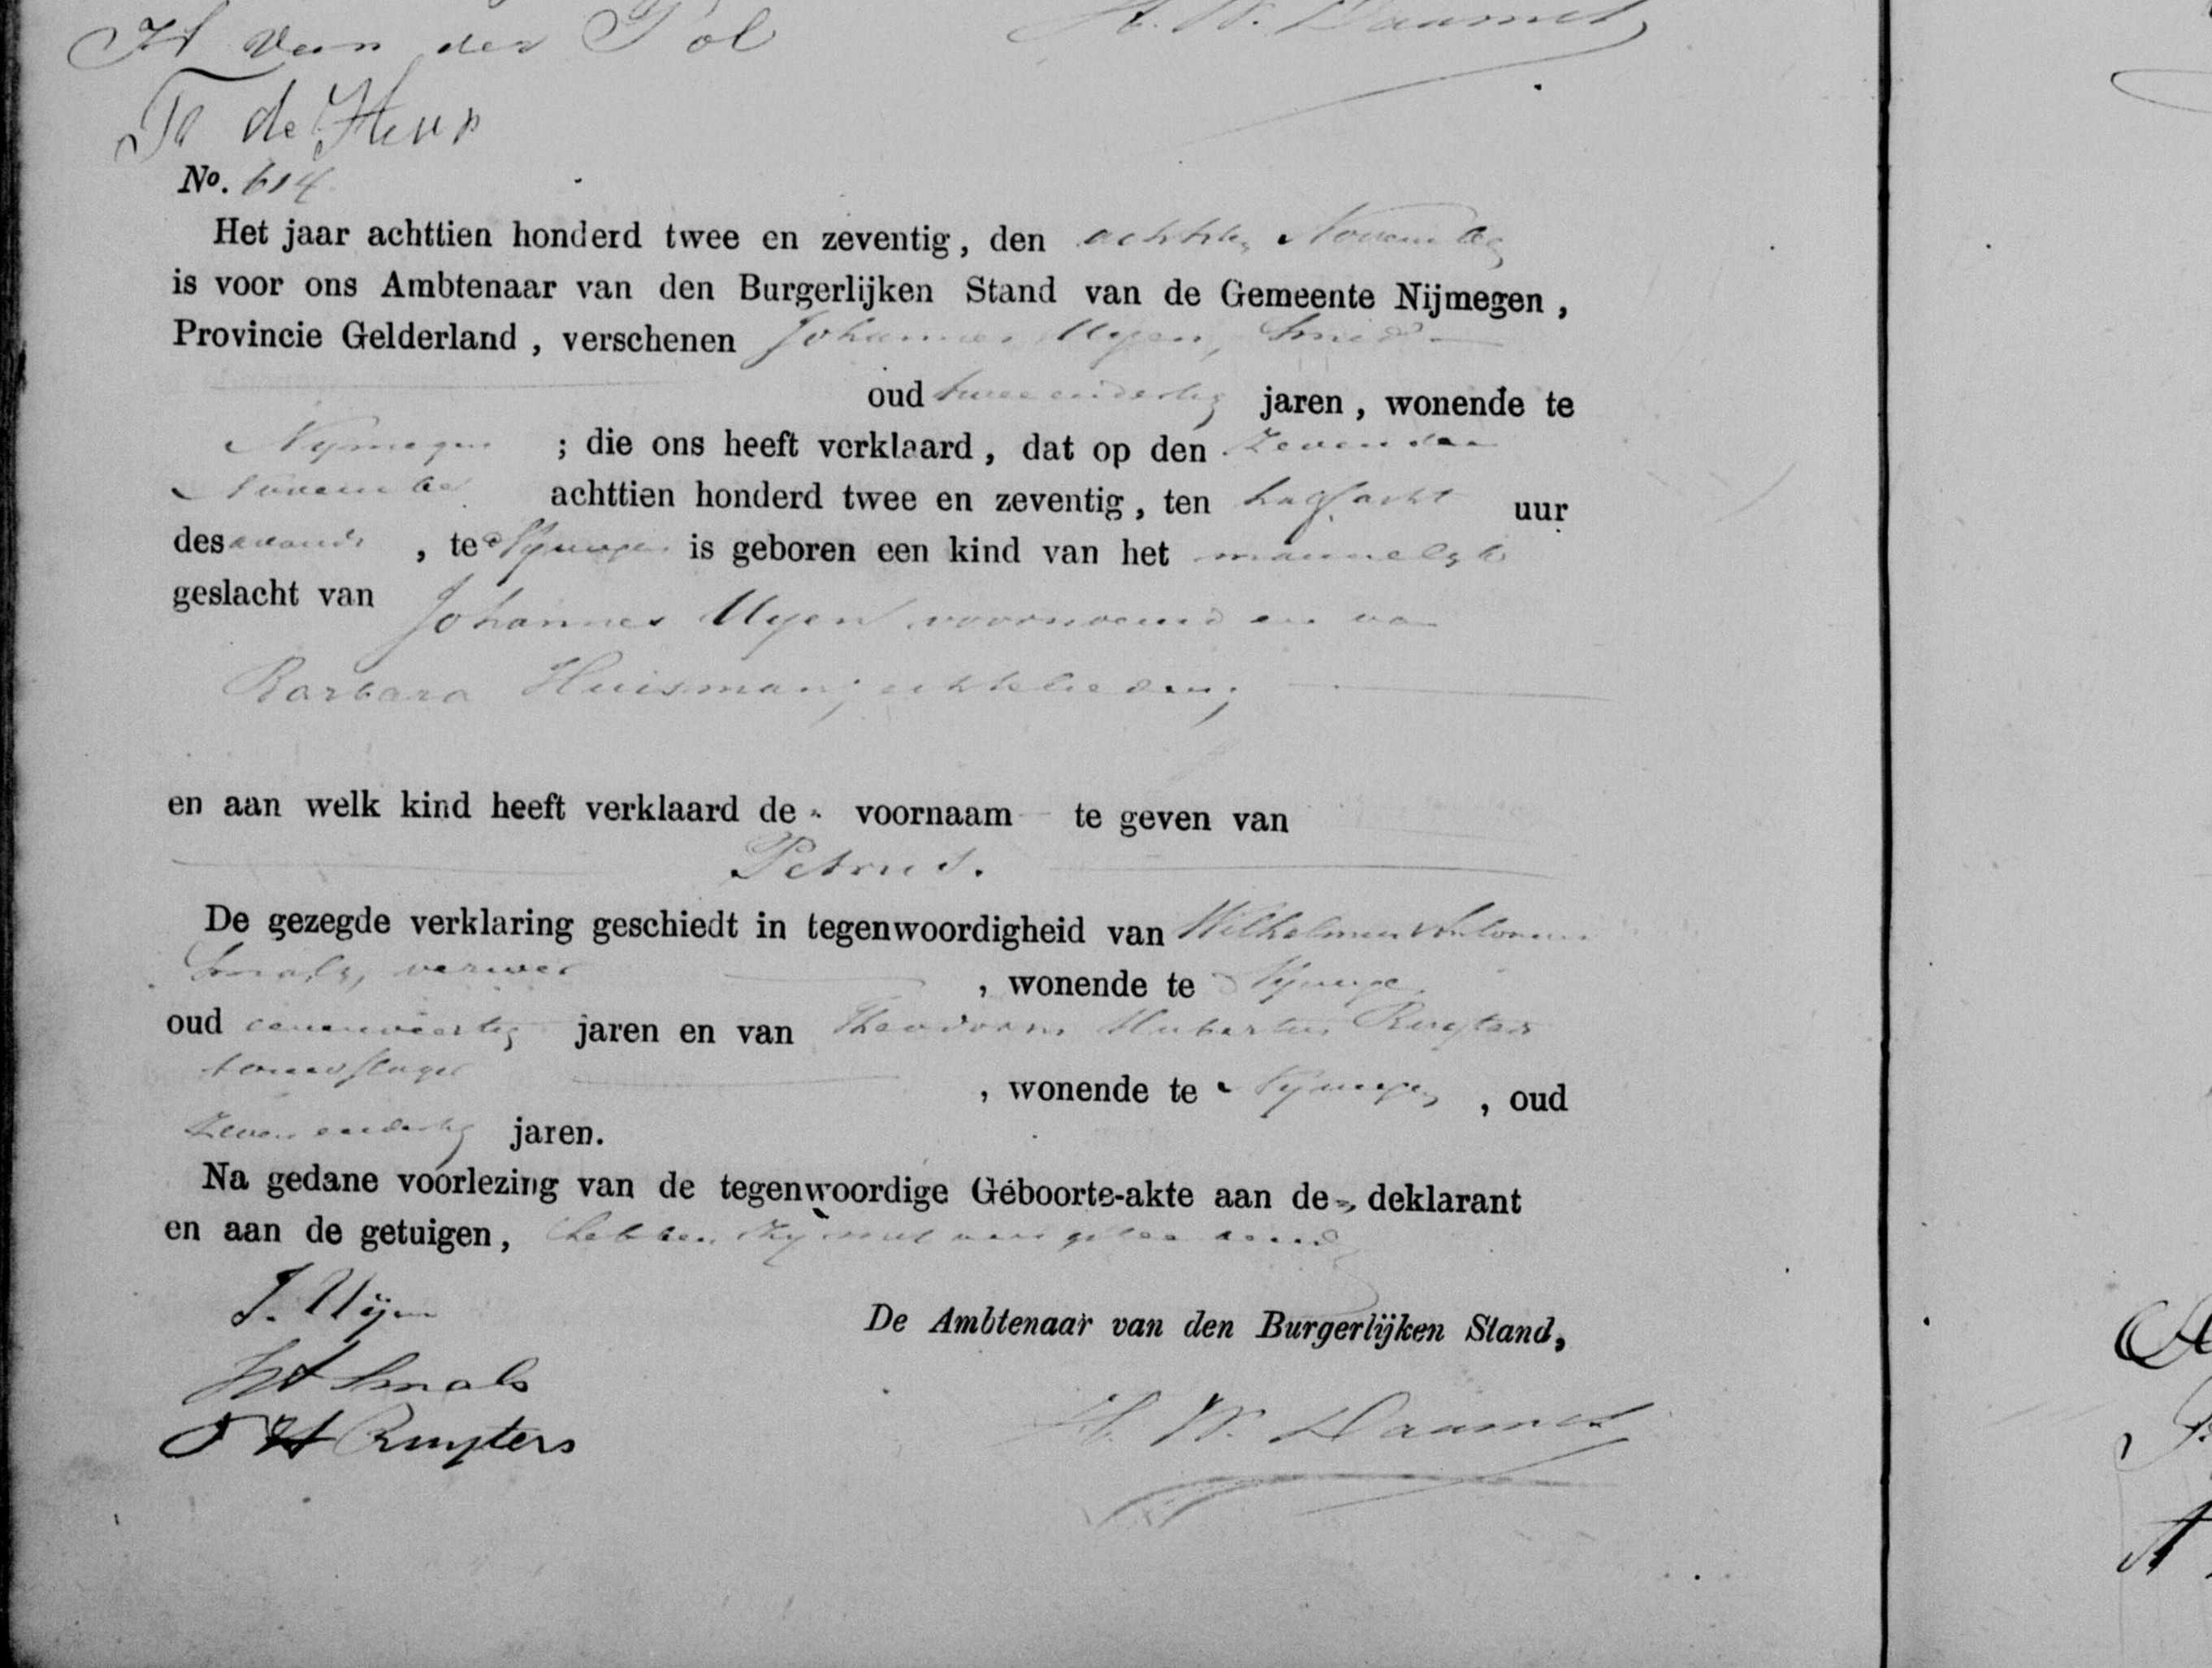 H van der Pol
H. W. Daamen
Th de Heus
No. 614
Het jaar achttien honderd twee en zeventig, den achtsten November
is voor ons Ambtenaar van den Burgerlijken Stand van de Gemeente Nijmegen,
Provincie Gelderland, verschenen Johannes Uyen, Smid
oud tweeendertig jaren, wonende te
Nymegen ; die ons heeft verklaard, dat op den Zevenden
November achttien honderd twee en zeventig, ten half acht uur
des avonds, te Nymegen is geboren een kind van het mannelyk
geslacht van Johannes Uyen voornoemd en van
Barbara Huisman, echtelieden;
en aan welk kind heeft verklaard de voornaam te geven van
Petrus.
De gezegde verklaring geschiedt in tegenwoordigheid van Wilhelmus Antonius
Smals, verwer, wonende te Nymegen
oud eenenveertig jaren en van Theodorus Hubertus Ruyters
, wonende te Nymegen, oud
Zevenendertig jaren.
Na gedane voorlezing van de tegenwoordige Geboorte-akte aan den deklarant
en aan de getuigen, hebben zy met ons geteekend
J. Uijen
De Ambtenaar van den Burgerlijken Stand,
WA Smals
T H Ruyters
H. W. Daamen